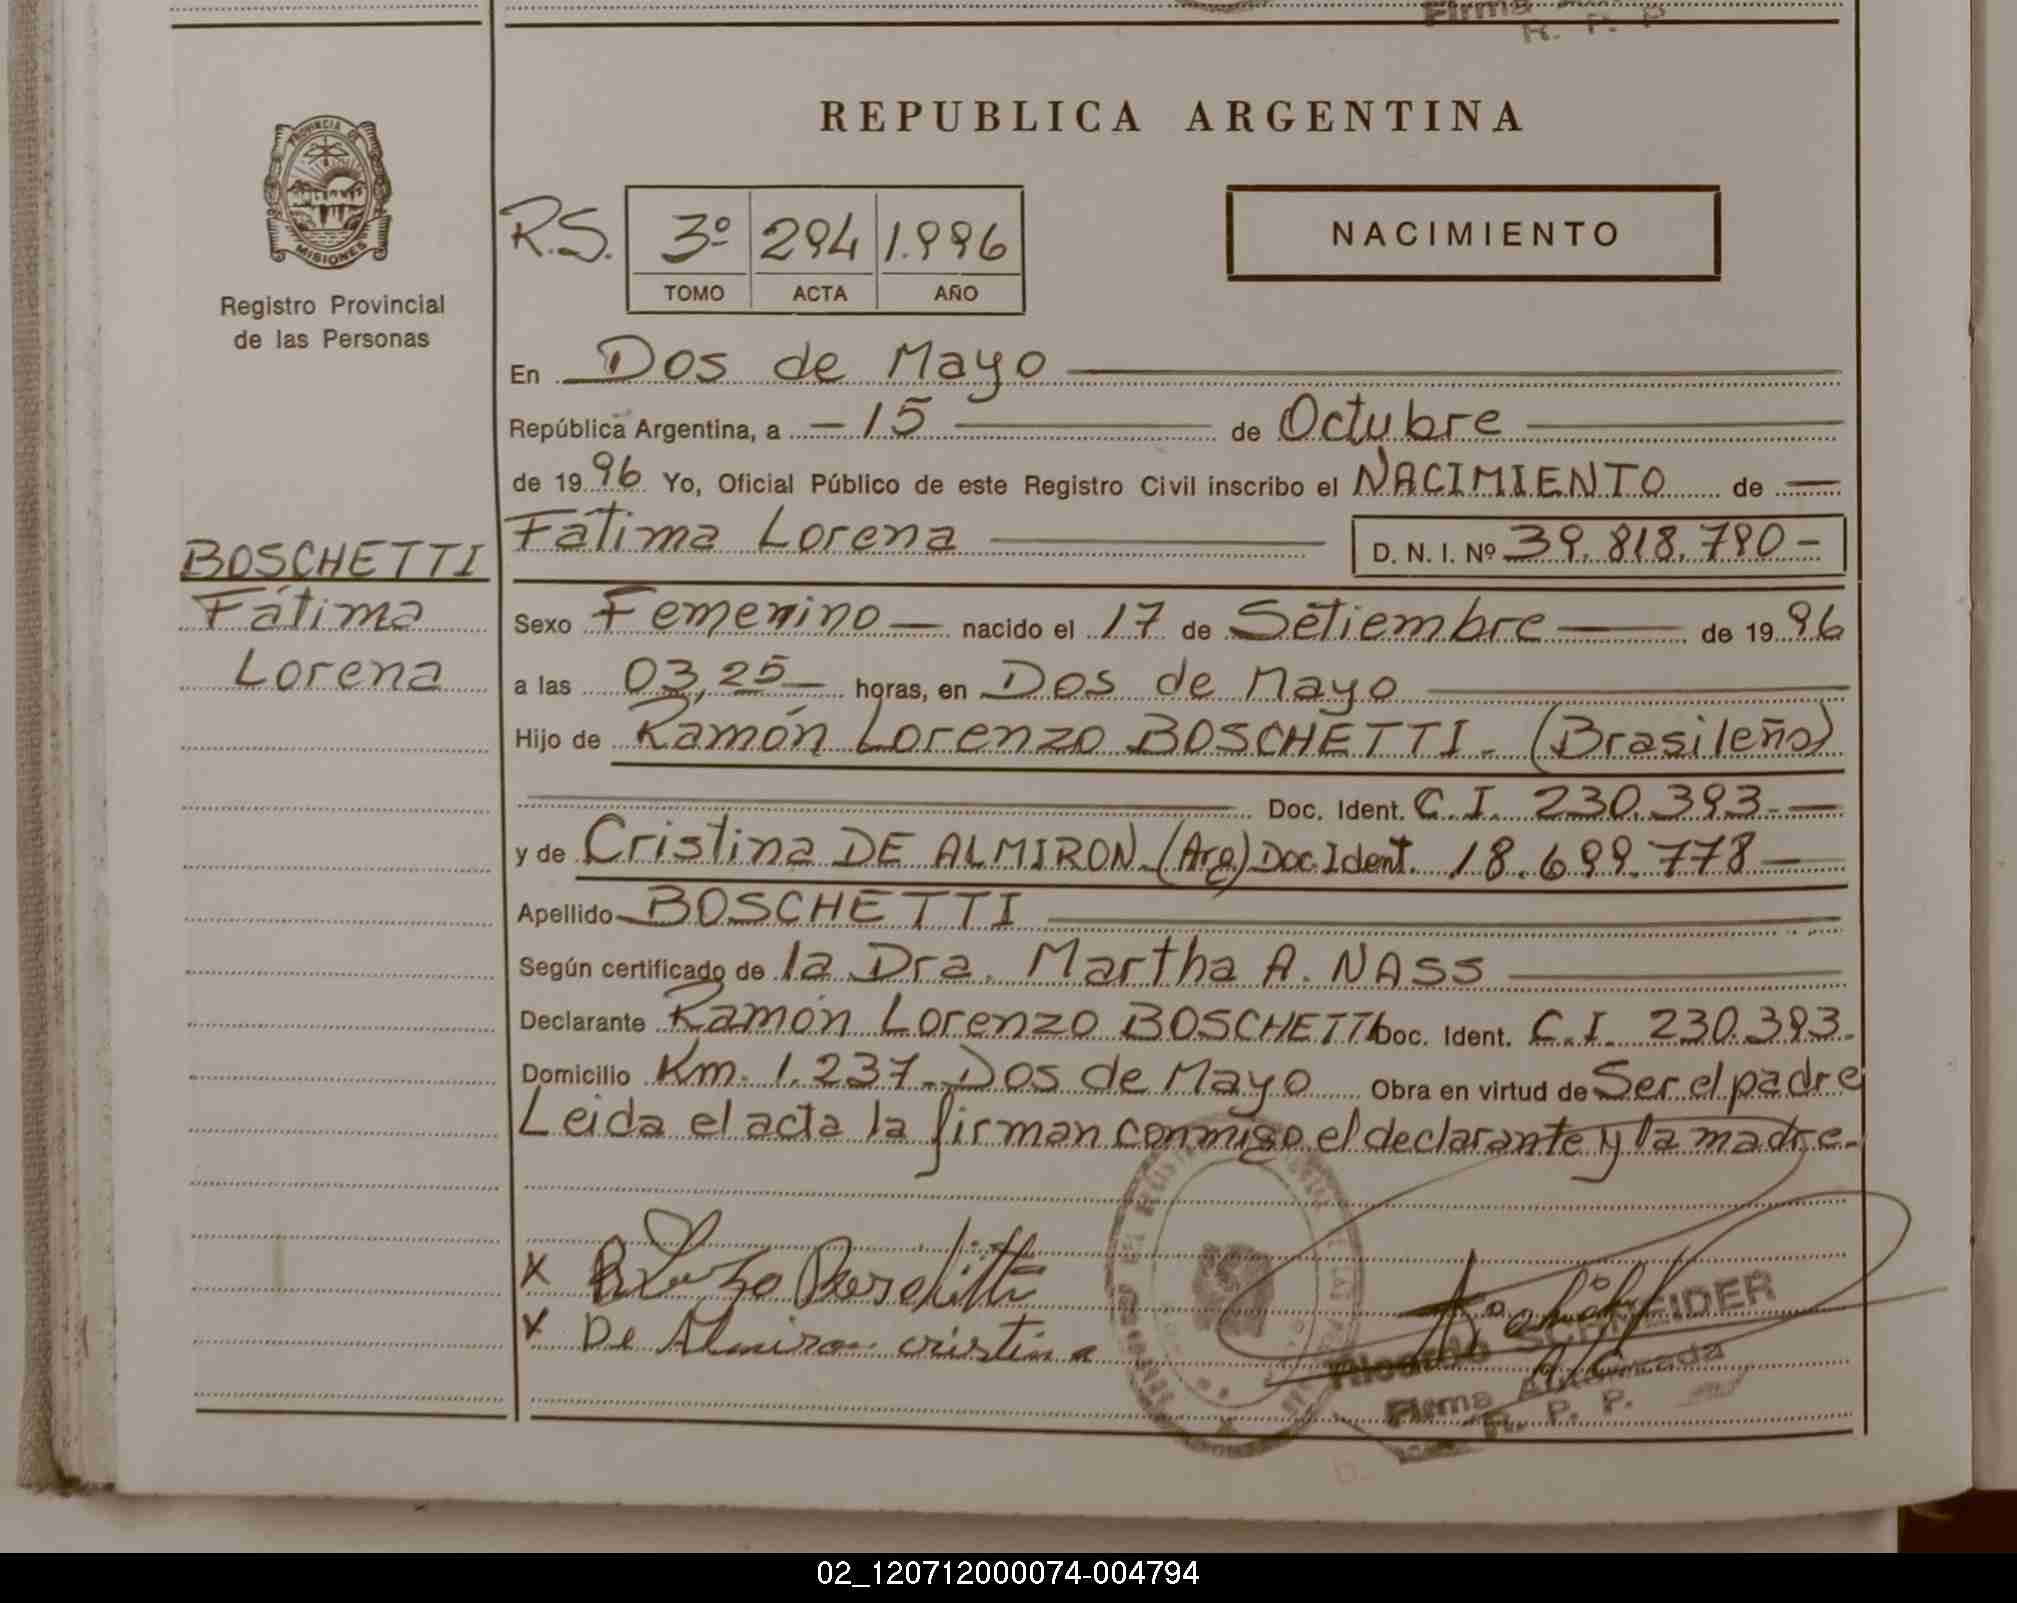 Firma
R. P. P
REPUBLICA ARGENTINA
PROVINCIA DE
MISIONES
Registro Provincial
de las Personas
R.S. 3º 294 1.996
TOMO ACTA AÑO
NACIMIENTO
En Dos de Mayo
República Argentina, a -15 de Octubre
de 1996 Yo, Oficial Público de este Registro Civil inscribo el NACIMIENTO de
Fátima Lorena D. N. I. Nº 39.818.790-
BOSCHETTI
Fátima
Lorena
Sexo Femenino nacido el 17 de Setiembre de 1996
a las 03,25 horas, en Dos de Mayo
Hijo de Ramón Lorenzo BOSCHETTI - (Brasileño)
Doc. Ident. C.I. 230.393.-
y de Cristina DE ALMIRON (Arg) Doc.Ident. 18.699.778
Apellido BOSCHETTI
Según certificado de la Dra. Martha A. NASS
Declarante Ramón Lorenzo BOSCHETTI Doc. Ident. C.I. 230.393.
Domicilio Km. 1.237 - Dos de Mayo Obra en virtud de Ser el padre
Leida el acta la firman conmigo el declarante y la madre.-
x
x De Almiron cristina
Ricardo SCHNEIDER
Firma Autorizada
R. P. P.
02_120712000074-004794